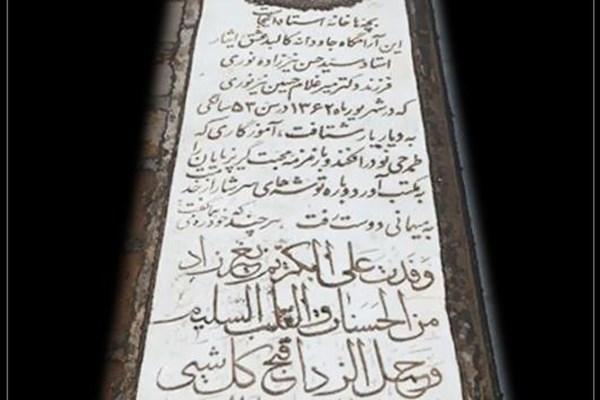 بچه‌ها خانه استاد اینجاست
این آرامگاه جاودانه کالبد عشق ایثار
استاد سید حسن نیرزاده نوری
فرزند دکتر میر غلام حسین نیر نوری
که در شهریور ماه ۱۳۶۲ در سن ۵۳ سالگی
به دیار یار شتافت، آموزگاری که
طرحی نو در افکند و با زمزمه محبت گریزپایان را
به مکتب آورد و باره توشه‌های سرشار از
به میهمانی دوست رفت هر چند که خود
وفدت علی الکریم بغیر زاد
من الحسنات والقلب السلیم
وحمل الزاد اقبح کل شیئ